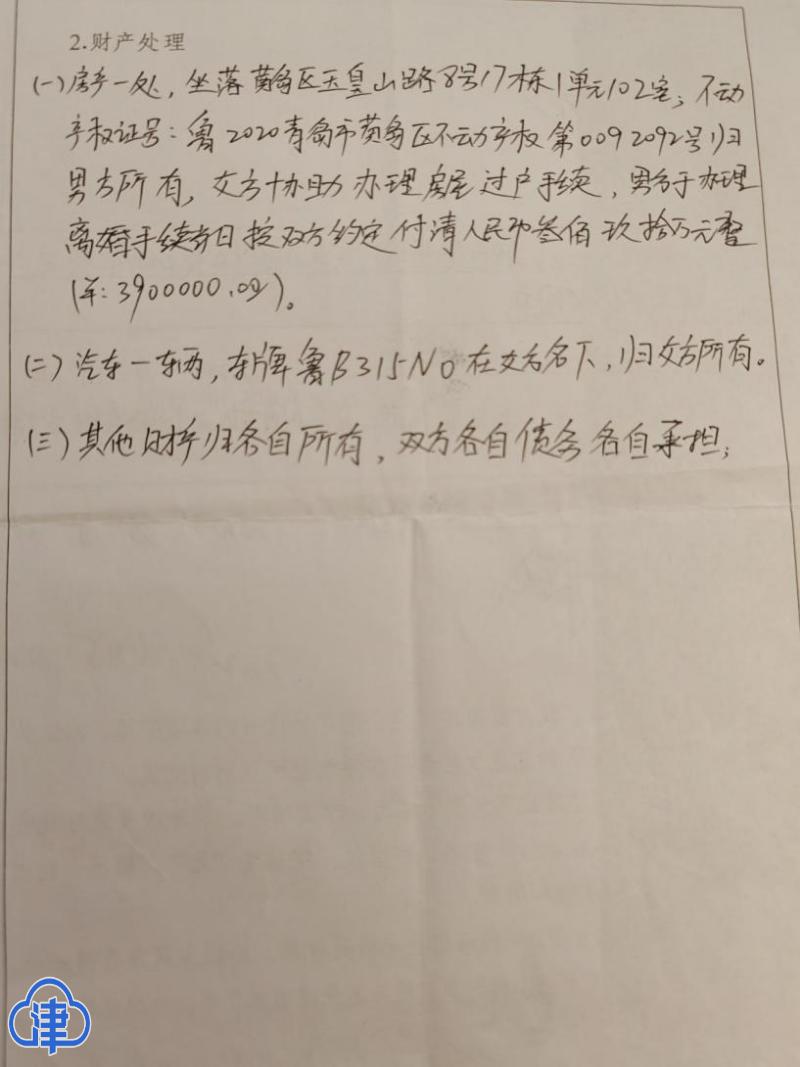 2.财产处理
(一)房产一处，坐落黄岛区玉皇山路8号17栋1单元102室；不动
产权证号：鲁2020青岛市黄岛区不动产权第0092092号归
男方所有，女方协助办理房屋过户手续，男方于办理
离婚手续当日按双方约定付清人民币叁佰玖拾万元整
(¥:3900000.00)。
(二)汽车一辆，车牌鲁B315N0在女方名下，归女方所有。
(三)其他财产归各自所有，双方各自债务各自承担；
津